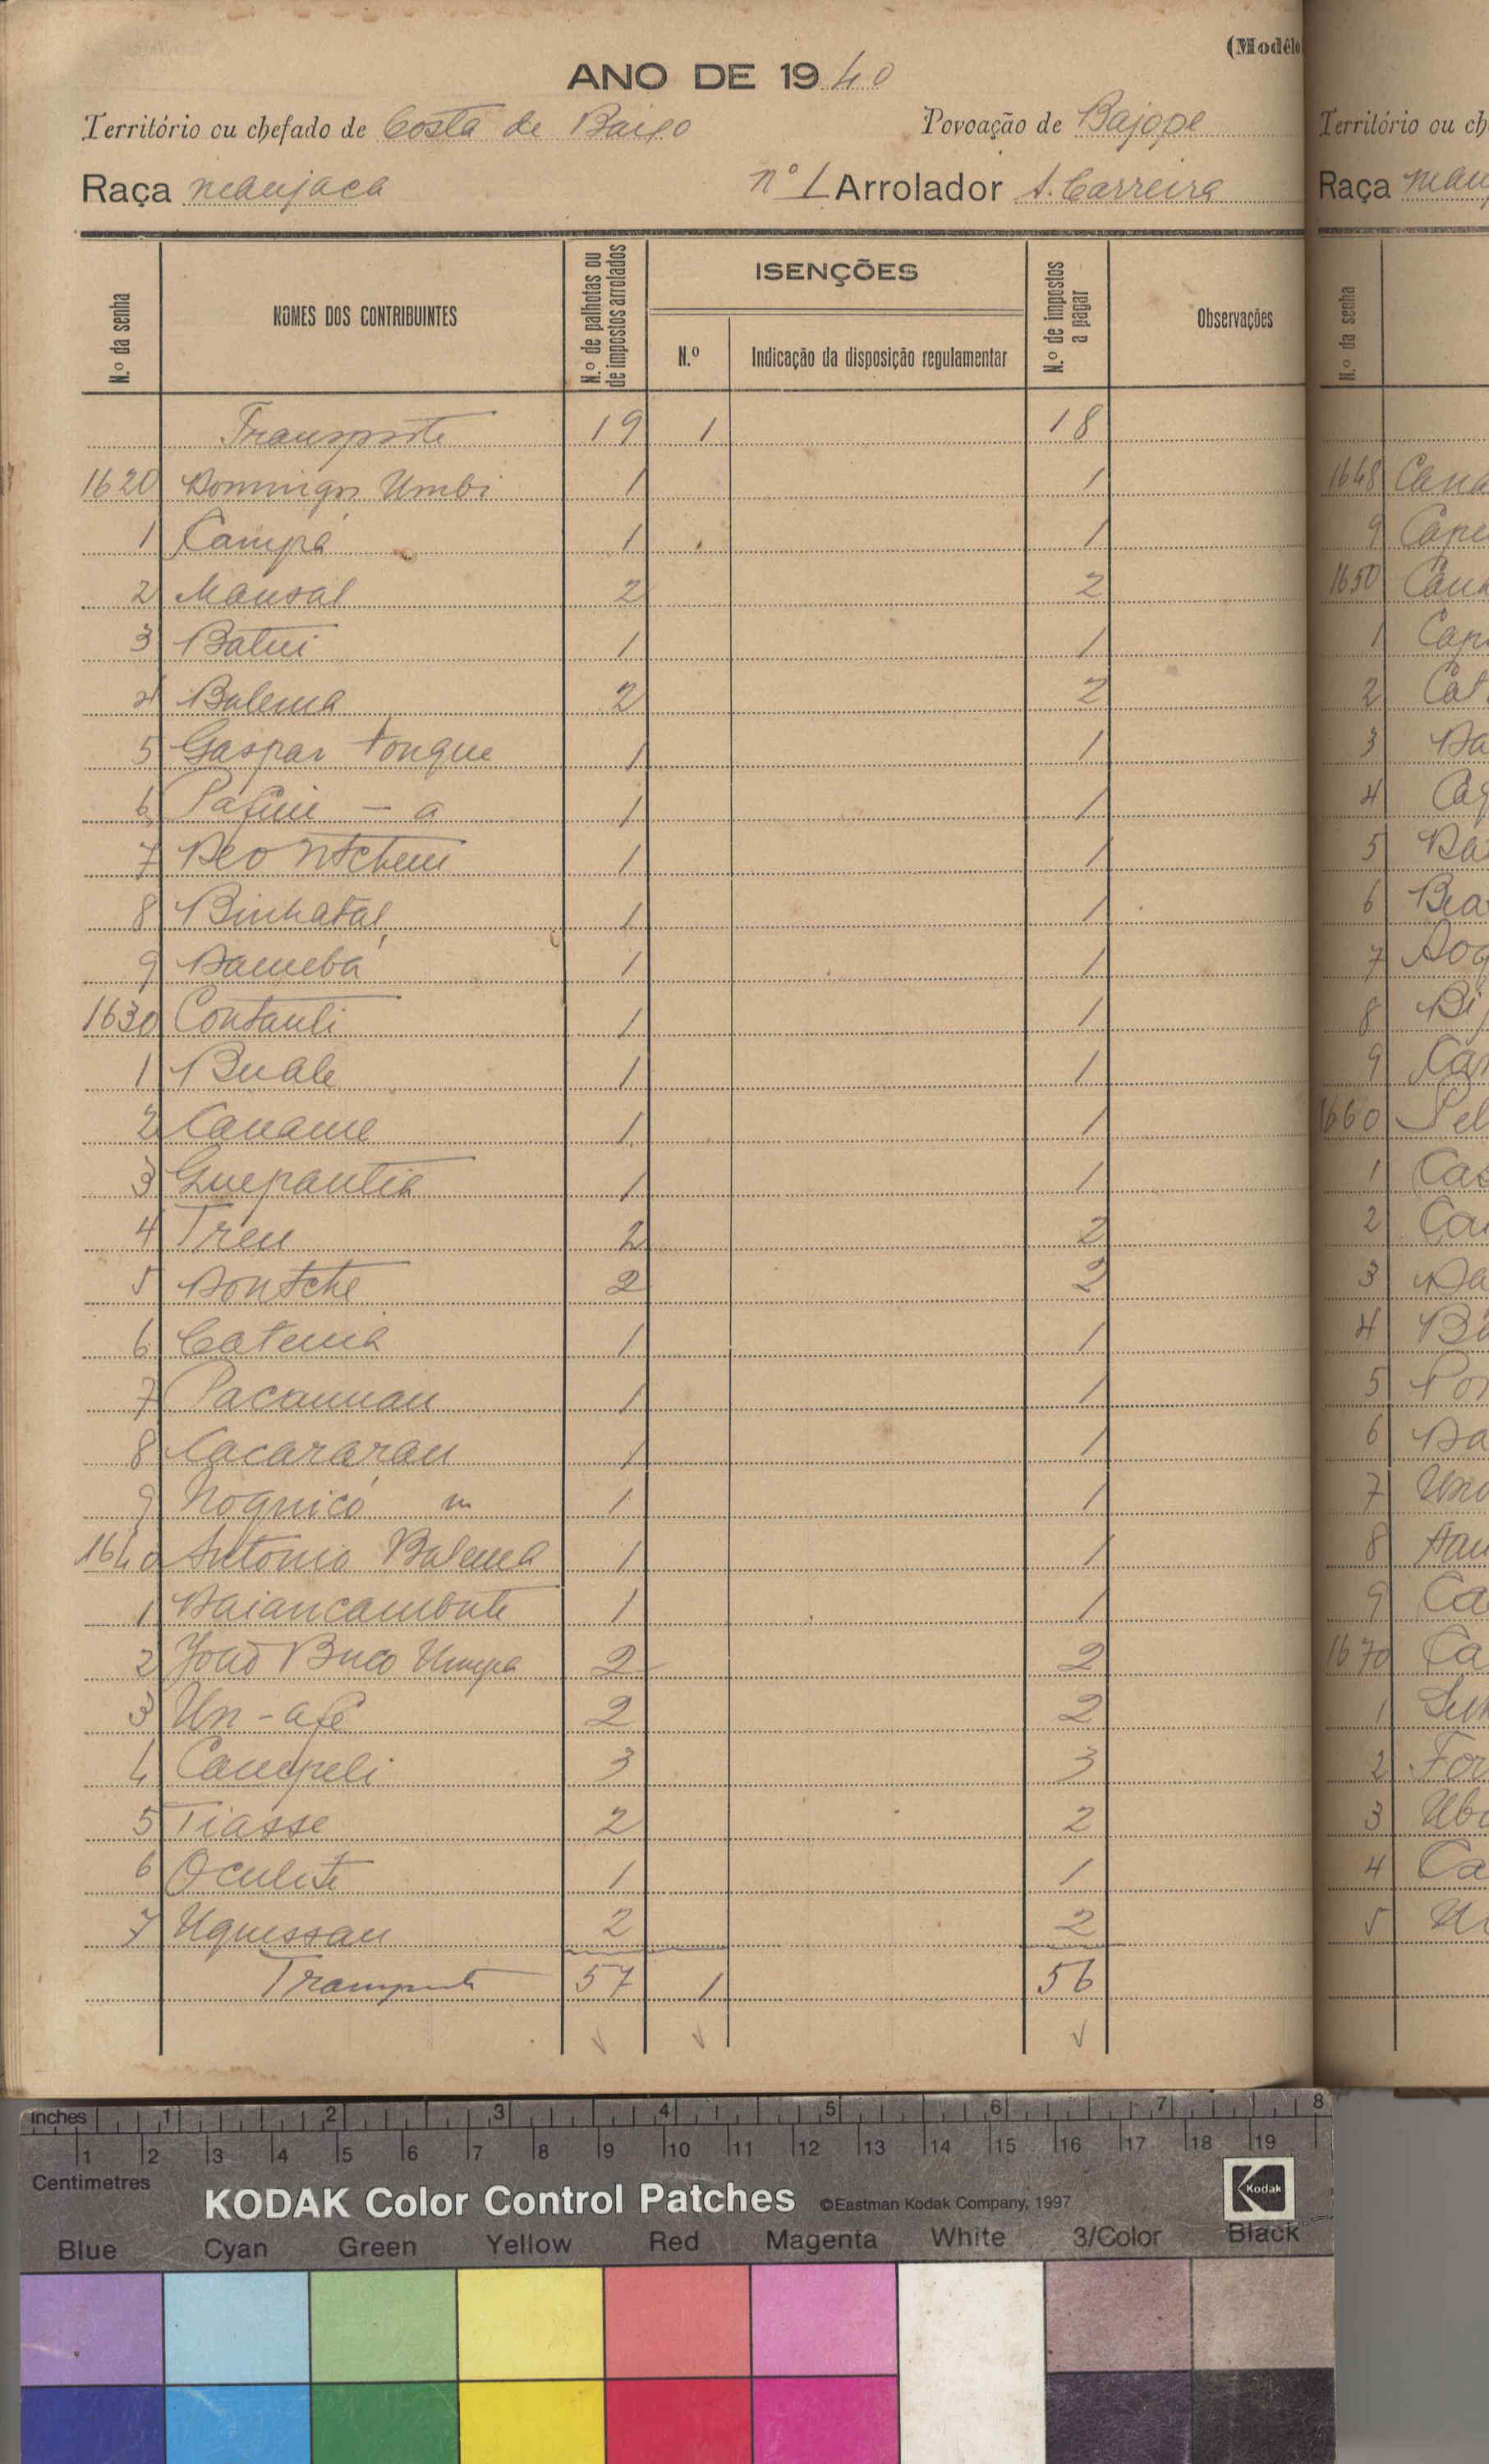 (Modêlo
ANO DE 1940
Território ou chefado de Costa de Baixo Povoação de Bajope
Raça manjaca nº 1 Arrolador A. Carreira
N.º da senha NOMES DOS CONTRIBUINTES N.º de palhotas ou de impostos arrolados ISENÇÕES N.º Indicação da disposição regulamentar N.º de impostos a pagar Observações
Transporte 19 1 18
1620 Domingos Umbi 1 1
1 Campá 1 1
2 Mansal 2 2
3 Batui 1 1
4 Balema 2 2
5 Gaspar Tongue 1 1
6 - a 1 1
7 Deo Ntchem 1 1
8 Binhatal 1 1
9 Damebá 1 1
1630 Contanli 1 1
1 Buale 1 1
2 Caname 1 1
3 Guepantia 1 1
4 Treu 2 2
5 Dontche 2 2
6 Catema 1 1
7 Pacamnau 1 1
8 Cacararau 1 1
9 Noquicó m 1 1
1640 Antonio Balema 1 1
1 Daiancambute 1 1
2 João Buco Umpa 2 2
3 Un-afé 2 2
4 Campeli 3 3
5 Tiasse 2 2
6 Oculete 1 1
7 Uquessau 2 2
Transporte 57 1 56
Território ou ch
Raça manj
N.º da senha
1648 Cana
9 Cape
1650 Cau
1 Cap
2 Cat
3 Da
4 Caq
5 Ba
6 Bia
7 Doq
8 Bi
9 Ca
1660 Pel
1 Cas
2 Cau
3 Da
4 Bu
5 Por
6 Da
7 Uno
8 Nau
9 Ca
1670 Ca
1
2 For
3 Ubi
4 Ca
5 U
inches 1 2 3 4 5 6 7 8
1 2 3 4 5 6 7 8 9 10 11 12 13 14 15 16 17 18 19
Centimetres
KODAK Color Control Patches ©Eastman Kodak Company, 1997 Kodak
Blue Cyan Green Yellow Red Magenta White 3/Color Black